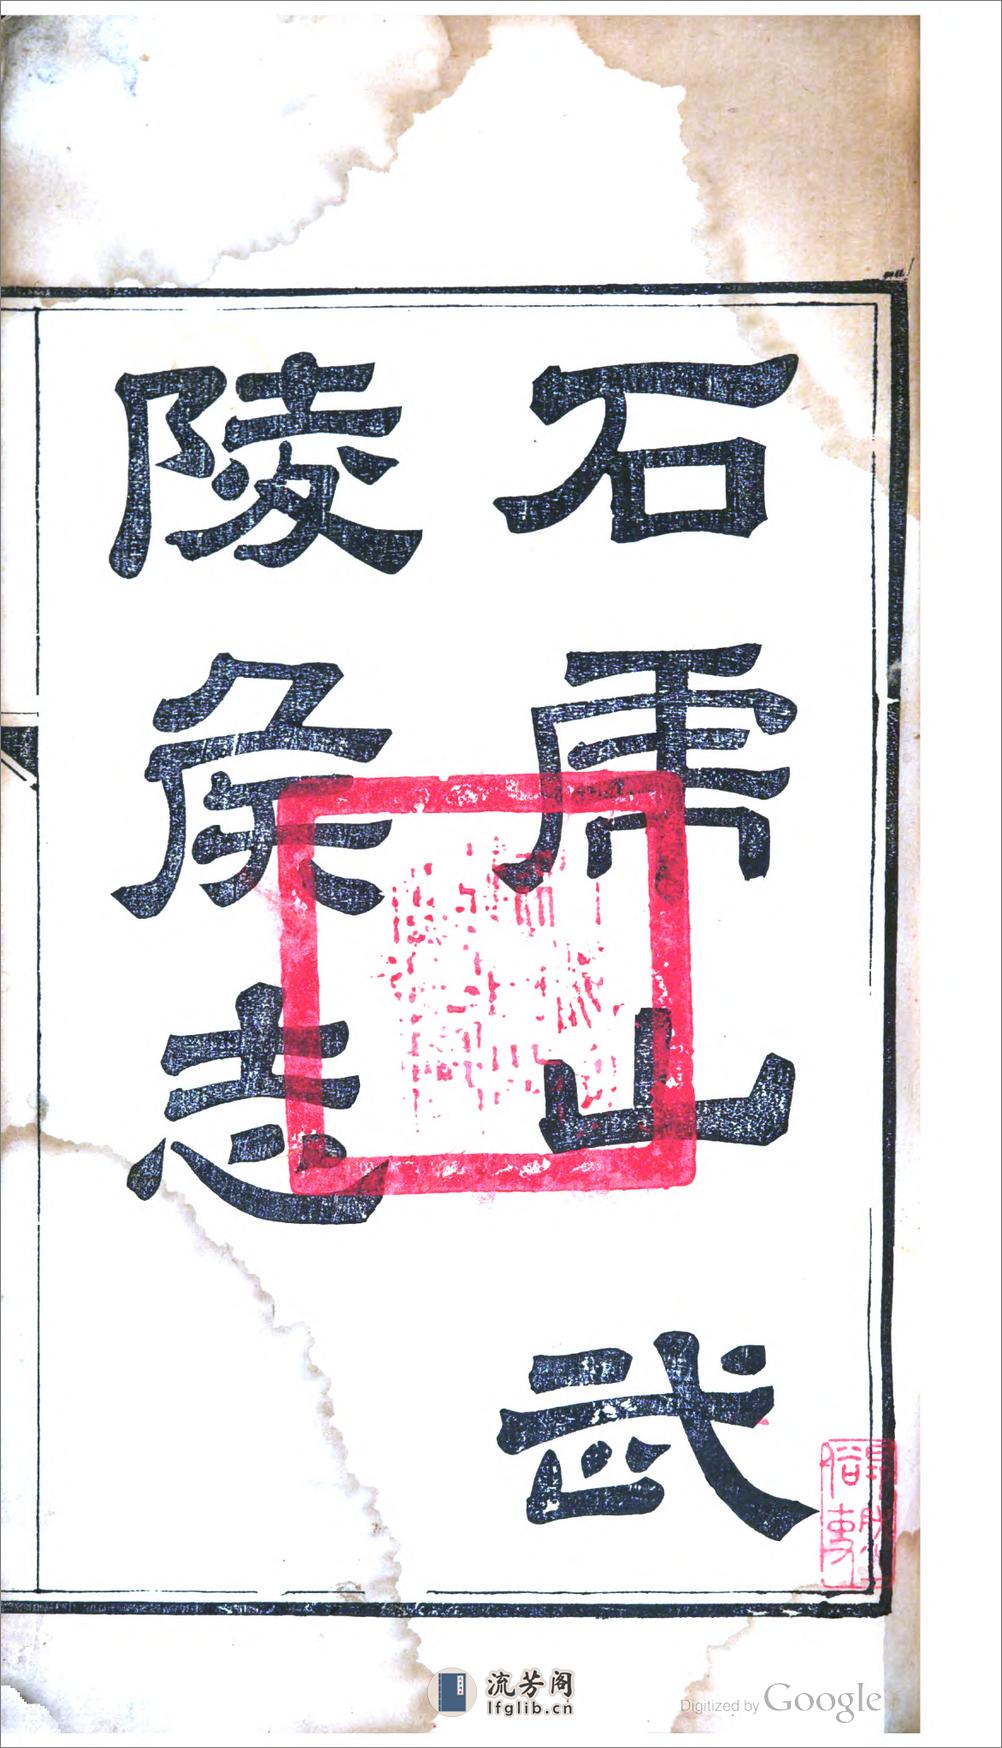 石虎山武
陵矦志
流芳阁
lfglib.cn
Digitized by Google